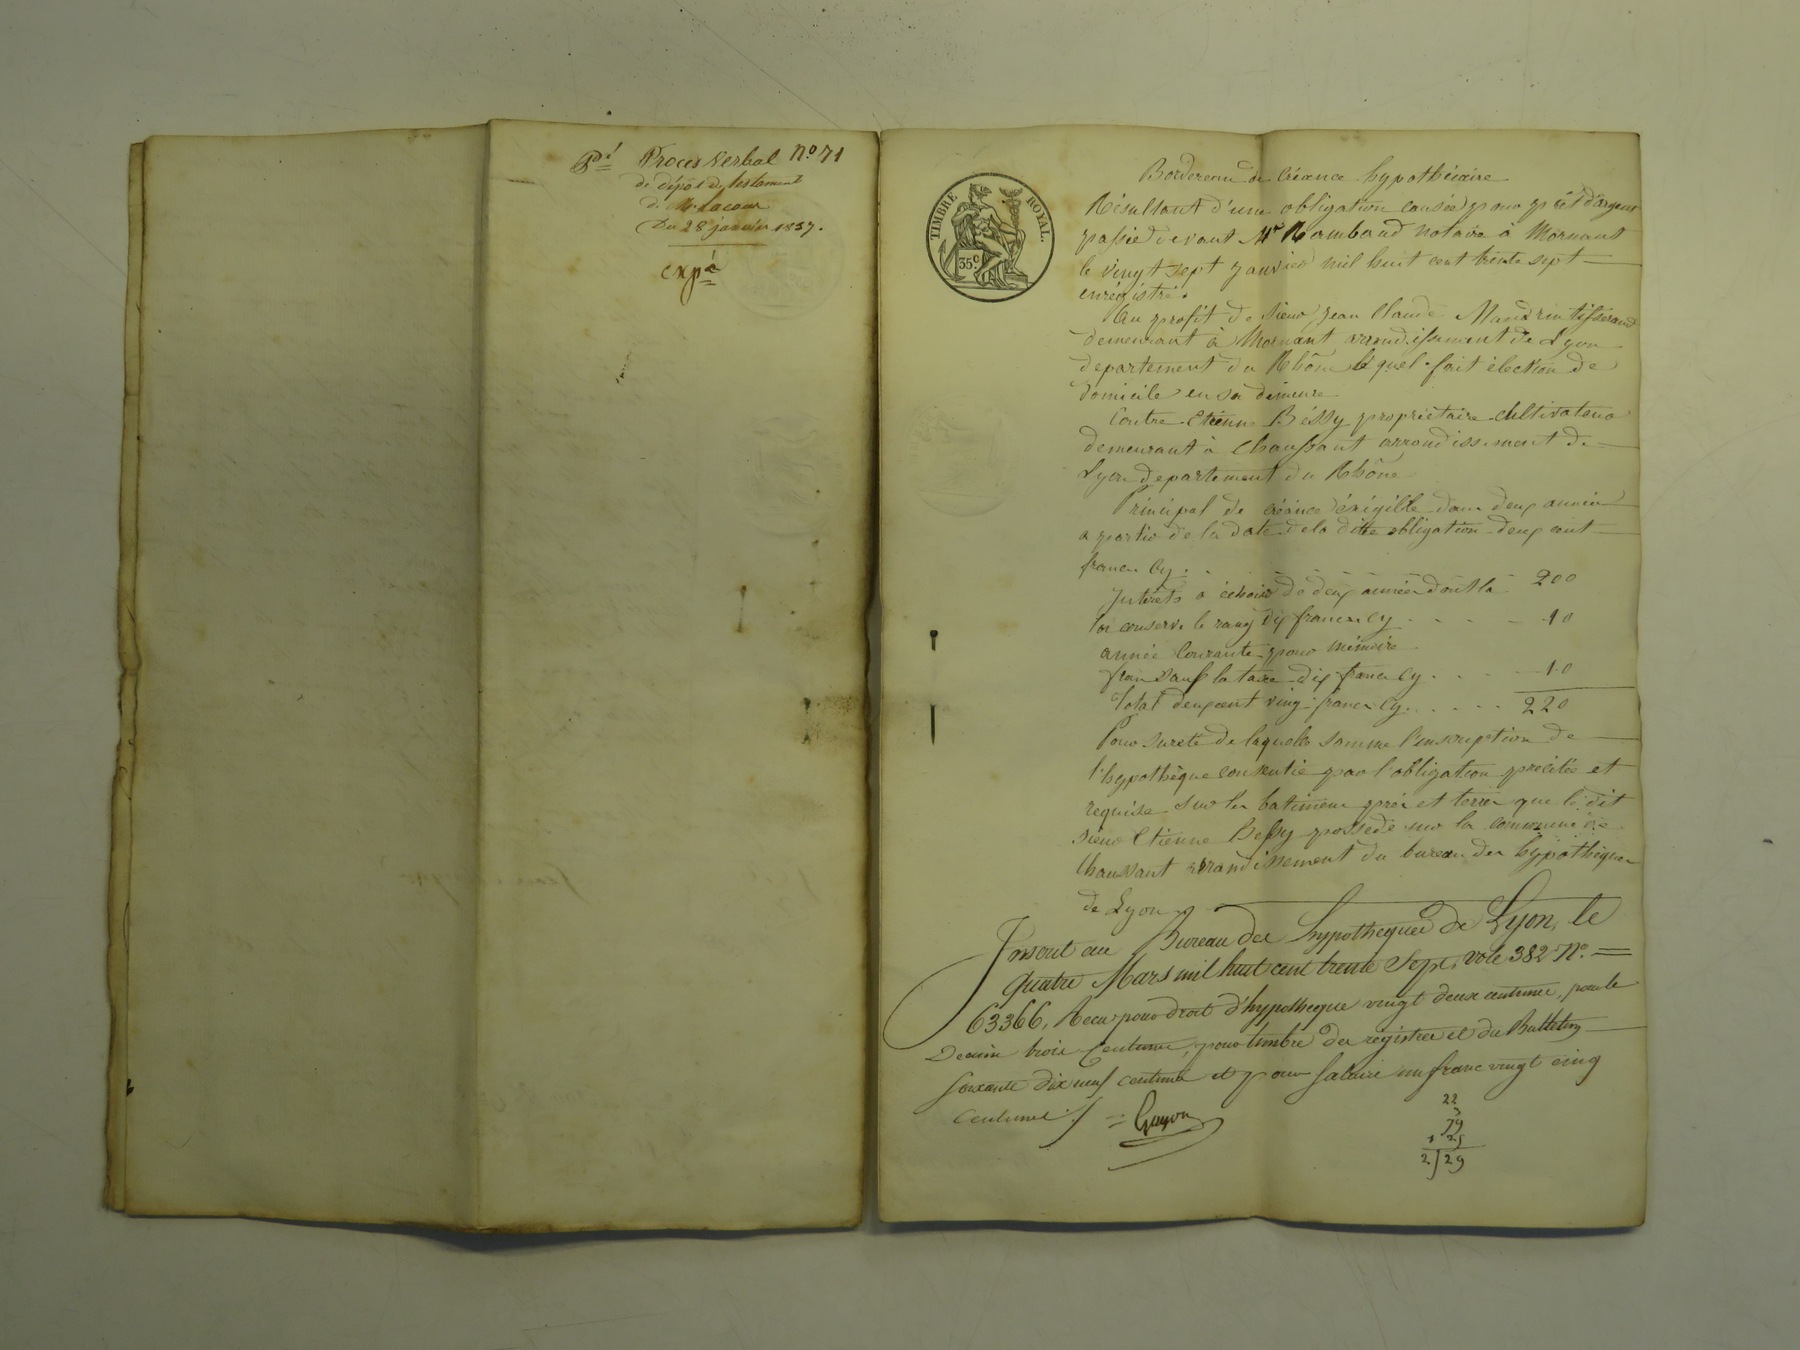 Pé Procès Verbal No 71
de dépôt de testament
de Mr Lacour
Du 28 janvier 1837.
expé
TIMBRE ROYAL.
35c.
Bordereau de Créance hypothécaire
Résultant d'une obligation causée pour prêt d'argent
passée devant Me Rambaud notaire à Mornant
le vingt sept janvier mil huit cent trente sept
enrégistré.
Au profit de sieur jean Claude Mandrin tisserand
demeurant à Mornant arrondissement de Lyon
departement du Rhône lequel fait élection de
domicile en sa demeure
Contre Etienne Béssy propriétaire cultivateur
demeurant à Chaussant arrondissement de
Lyon departement du Rhône
Principal de créance éxigible dans deux années
a partir de la date de la ditte obligation deux cent
francs Cy . . 200
jnterets a échoir de deux années dont la
loi conserve le rang dix francs cy . . . . 10
année Courante pour mémoire
frais sauf la taxe dix francs Cy . . . . 10
Total deux cent vingt francs Cy . . . . . 220
Pour sureté de laquelle somme l'inscription de
l'hypothèque consentie par l'obligation précitée et
requise sur les batimens prés et terres que le dit
sieur Etienne Bessy possede sur la commune de
Chaussant arrondissement du bureau des hypothèques
de Lyon
Inscrit au Bureau des hypothèques de Lyon, le
quatre Mars mil huit cent trente Sept, vole 382 No. =
63366, Reçu pour droit d'hypotheque vingt deux centimes, pour le
Decime trois Centimes, pour timbre des registres et du Bulletin
soixante dix neuf centimes et pour salaire un franc vingt cinq
Centimes ./. = Guyon
22
3
79
1 25
2/29